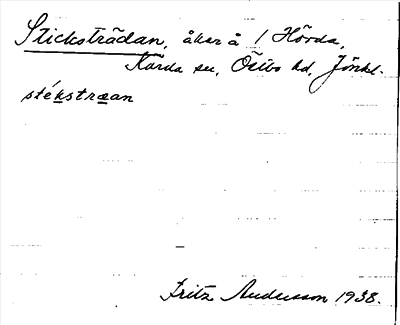 Stickstrådan, åker å 1 Hörda,
Kärda sn, Östbo hd, Jönkl.
stékstræan
Fritz Andersson 1938.